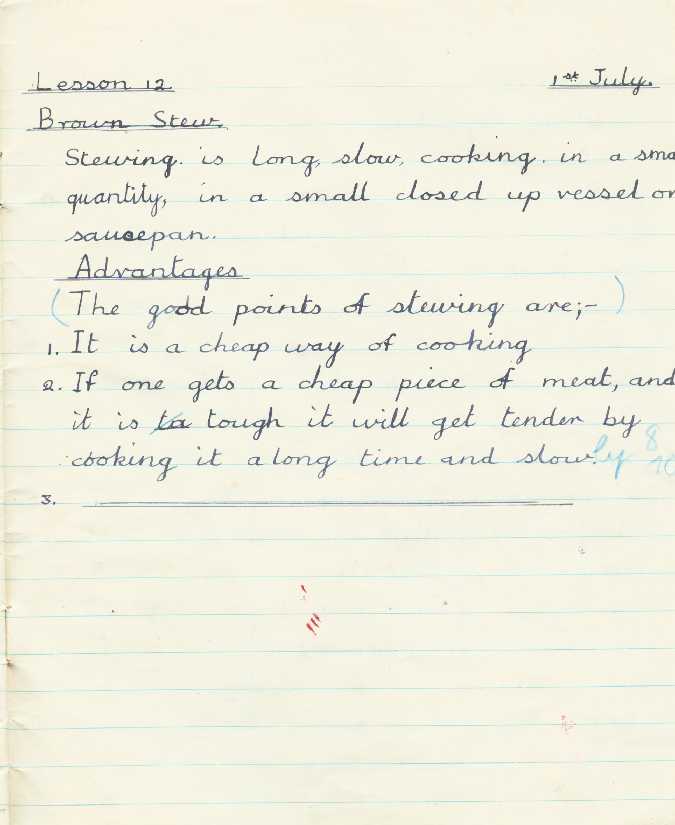 Lesson 12 1st July.
Brown Stew.
Stewing. is long, slow, cooking. in a sma
quantity, in a small closed up vessel or
saucepan.
Advantages
(The good points of stewing are;- )
1. It is a cheap way of cooking
2. If one gets a cheap piece of meat, and
it is ta tough it will get tender by
cooking it a long time and slow.ly 8
10
3.